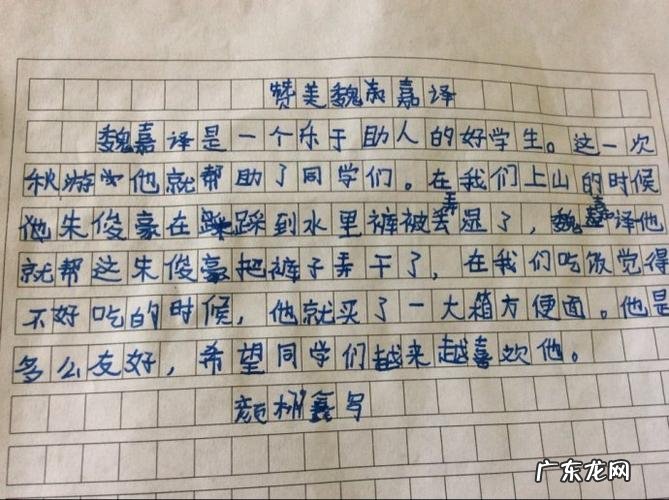 赞美魏嘉译
魏嘉译是一个乐于助人的好学生。这一次
秋游中他就帮助了同学们。在我们上山的时候
他朱俊豪在踩到水里裤被弄湿了，魏嘉译他
就帮这朱俊豪把裤子弄干了，在我们吃饭觉得
不好吃的时候，他就买了一大箱方便面。他是
多么友好，希望同学们越来越喜欢他。
颜栩鑫写
广东龙网